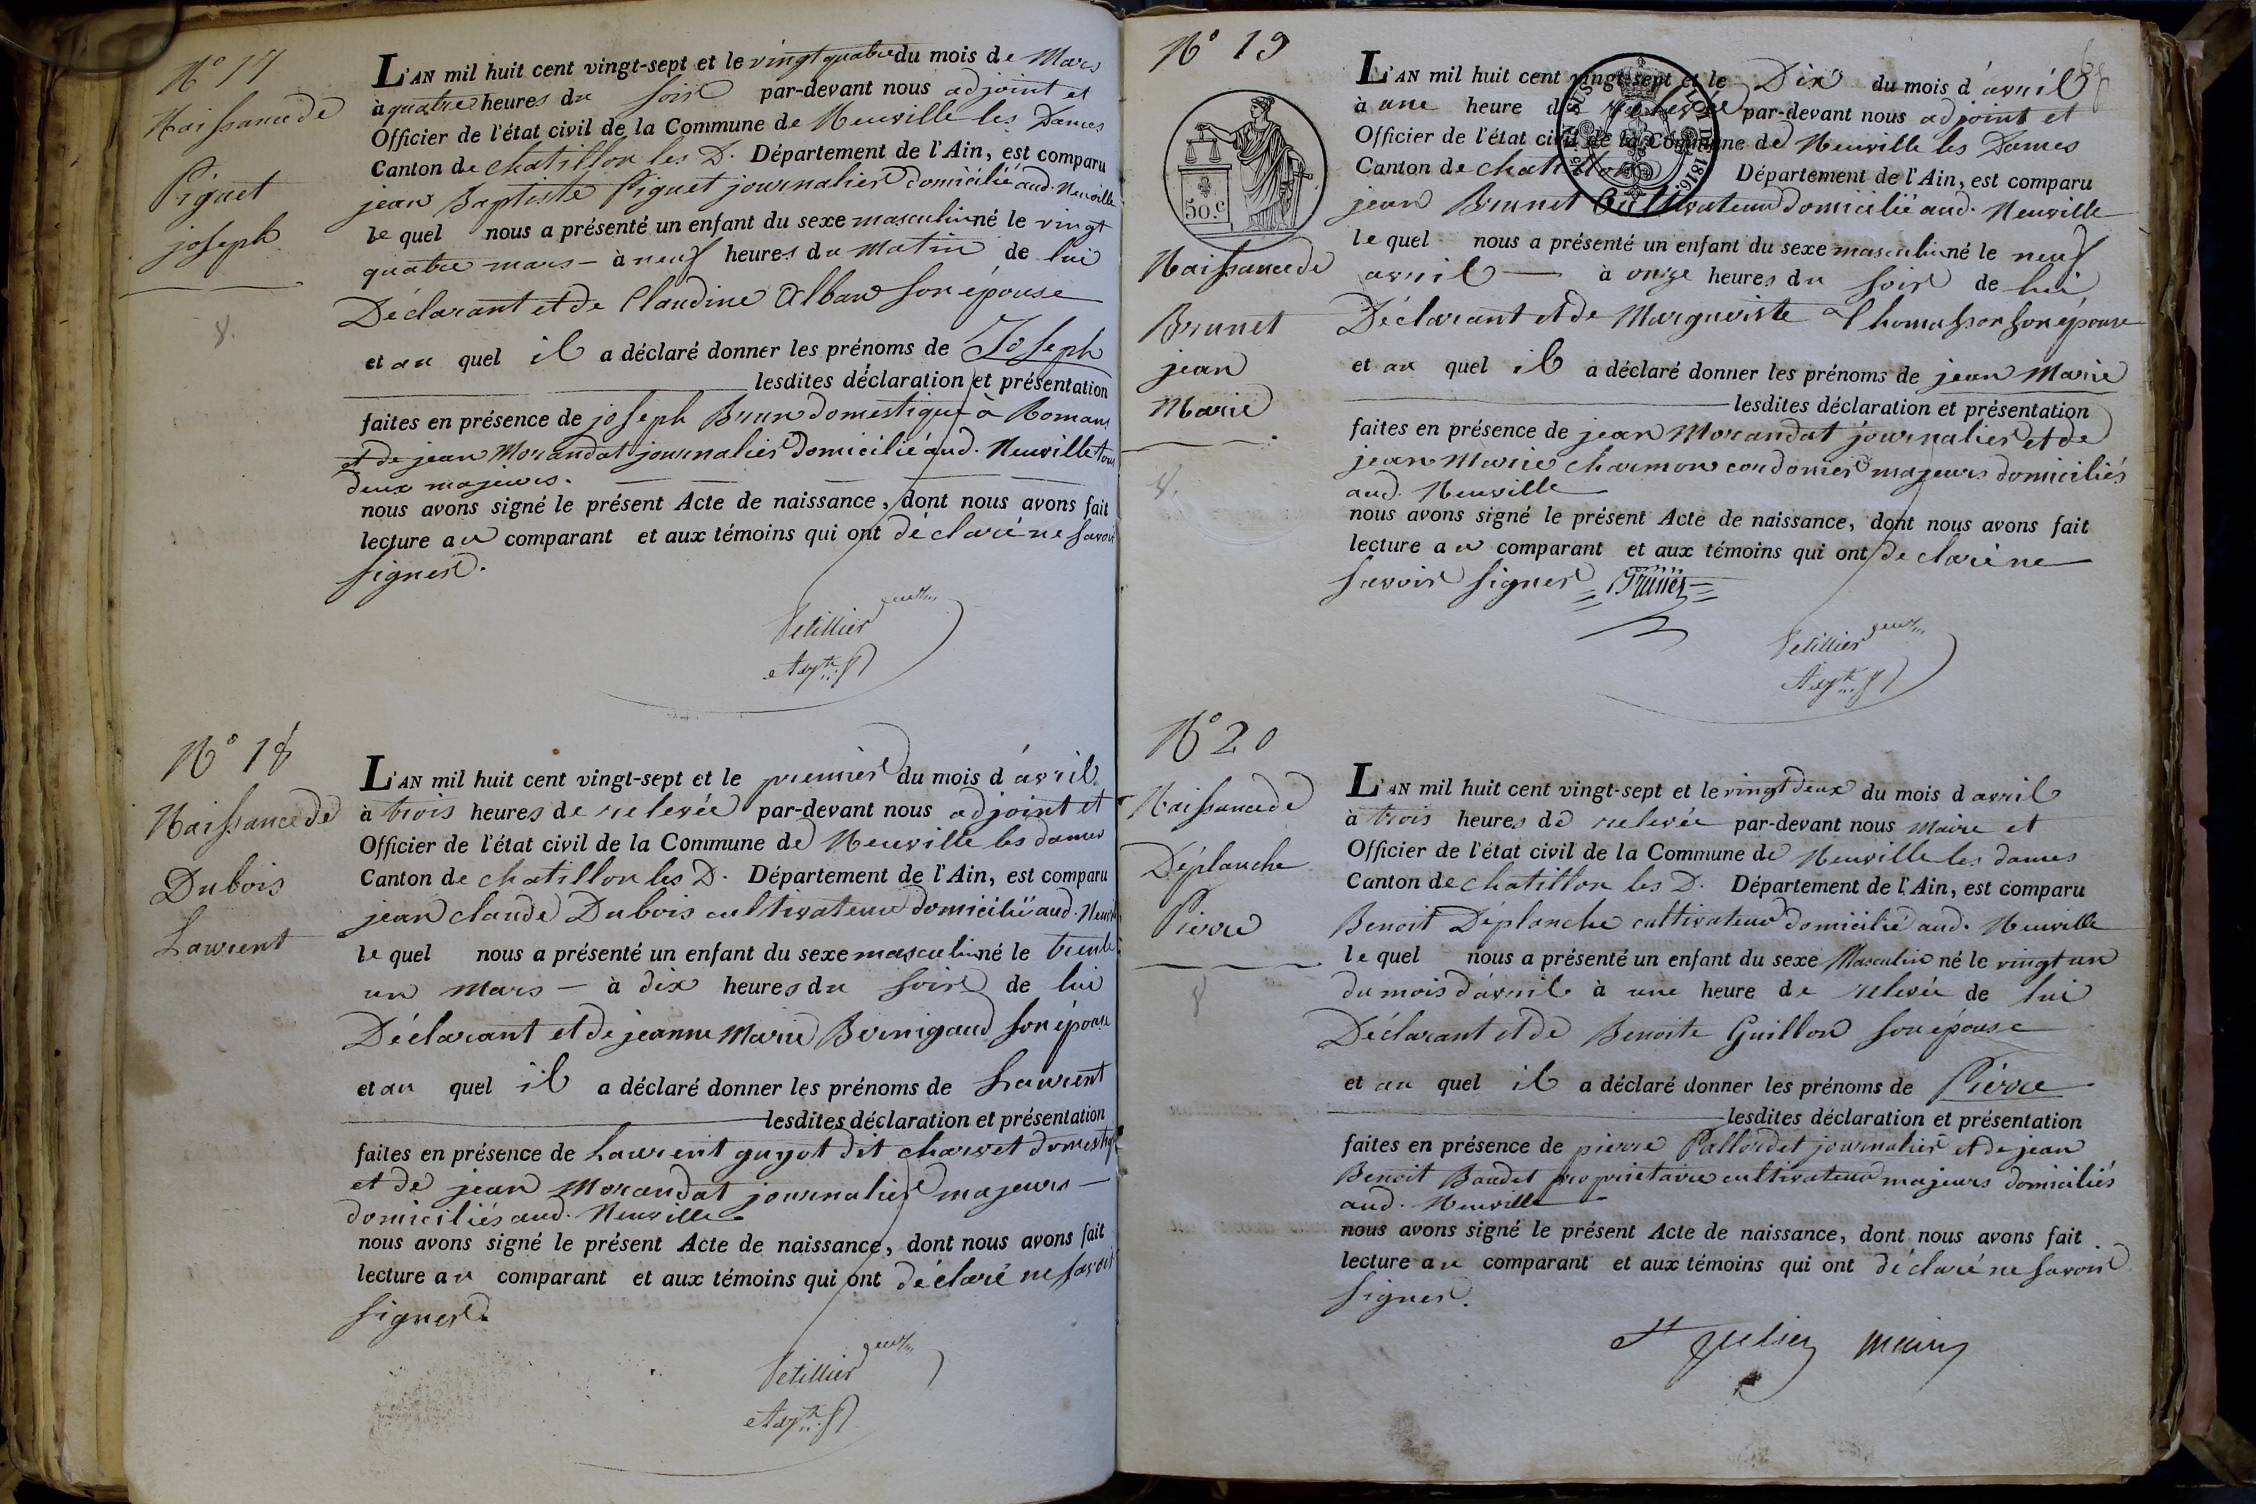 N° 17
Naissance de
Piguet
joseph
8.
L'AN mil huit cent vingt-sept et le vingt quatre du mois de Mars
à quatre heures du soir par-devant nous adjoint et
Officier de l'état civil de la Commune de Neuville les Dames
Canton de chatillon les D. Département de l'Ain, est comparu
jean Baptiste Piguet journalier domicilié aud. Neuville
le quel nous a présenté un enfant du sexe masculin né le vingt
quatre mars — à neuf heures du Matin de lui
Déclarant et de Claudine Alban son épouse
et au quel il a déclaré donner les prénoms de Joseph
lesdites déclaration et présentation
faites en présence de joseph Brun domestique à Romans
et de jean Morandat journalier domicilié aud. Neuville tous
deux majeurs.
nous avons signé le présent Acte de naissance, dont nous avons fait
lecture au comparant et aux témoins qui ont déclaré ne savoir
signer.
Petillier
Adjt.
N° 18
Naissance de
Dubois
Laurent
L'AN mil huit cent vingt-sept et le premier du mois d'avril
à trois heures de relevée par-devant nous adjoint et
Officier de l'état civil de la Commune de Neuville les dames
Canton de chatillon les D. Département de l'Ain, est comparu
jean claude Dubois cultivateur domicilié aud. Neuville
le quel nous a présenté un enfant du sexe masculin né le trente
un Mars — à dix heures du soir de lui
Déclarant et de jeanne Marie Bernigaud son épouse
et au quel il a déclaré donner les prénoms de Laurent
lesdites déclaration et présentation
faites en présence de Laurent guyot dit charvet domestique
et de jean Morandat journalier majeurs —
domiciliés aud. Neuville.
nous avons signé le présent Acte de naissance, dont nous avons fait
lecture au comparant et aux témoins qui ont déclaré ne savoir
signer.
Petillier
Adjt.
N° 19
50.c
Naissance de
Brunet
jean
Marie
8.
L'AN mil huit cent vingt-sept et le Dix du mois d'avril
à une heure de relevée par-devant nous adjoint et
Officier de l'état civil de la Commune de Neuville les Dames
Canton de chatillon Département de l'Ain, est comparu
jean Brunet Cultivateur domicilié aud. Neuville
le quel nous a présenté un enfant du sexe masculin né le neuf
avril — à onze heures du soir de lui
Déclarant et de Margueritte Thomasson son épouse
et au quel il a déclaré donner les prénoms de jean Marie
lesdites déclaration et présentation
faites en présence de jean Morandat journalier et de
jean Marie charmon cordonier majeurs domiciliés
aud. Neuville
nous avons signé le présent Acte de naissance, dont nous avons fait
lecture au comparant et aux témoins qui ont déclaré ne
savoir signer Brunet
Petillier
Adjt.
N° 20
Naissance de
Déplanche
Pierre
8
L'AN mil huit cent vingt-sept et le vingt deux du mois d'avril
à trois heures de relevée par-devant nous Maire et
Officier de l'état civil de la Commune de Neuville les dames
Canton de chatillon les D. Département de l'Ain, est comparu
Benoit Déplanche cultivateur domicilié aud. Neuville
le quel nous a présenté un enfant du sexe Masculin né le vingt un
du mois d'avril à une heure de relevée de lui
Déclarant et de Benoite Guillon son épouse
et au quel il a déclaré donner les prénoms de Pierre
lesdites déclaration et présentation
faites en présence de pierre Pallordet journalier et de jean
Benoit Baudet propriétaire cultivateur majeurs domiciliés
aud. Neuville
nous avons signé le présent Acte de naissance, dont nous avons fait
lecture au comparant et aux témoins qui ont déclaré ne savoir
signer.
St julien Maire